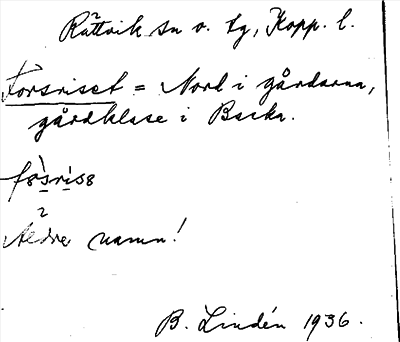 Rättvik sn o. tg, Kopp. l.
Forsriset = Nord i gårdarna,
gårdklase i Backa.
Äldre namn!
B. Lindén 1936.